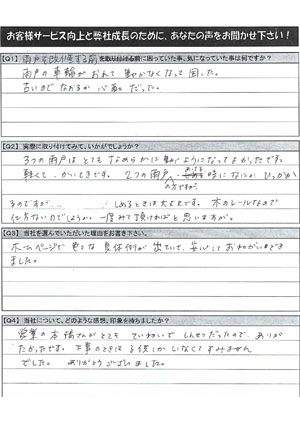 お客様サービス向上と弊社成長のために、あなたの声をお聞かせ下さい！
【Q1】雨戸を改修する前を取り付ける前に困っていた事、気になっていた事は何ですか？
雨戸の車輪がおれて動かなくなって困った。
古いので なおるか 心配だった。
【Q2】実際に取り付けてみて、いかがでしょうか？
3つの雨戸はとてもなめらかに動くようになってよかったです。
軽くて、かいてきです。2つの雨戸が、あける時になにかひっかか
の方ですが、
るのですが... しめるときは大丈夫です。木のレールなので
仕方ないのでしょうか。一度みて頂ければと思いますが。
【Q3】当社を選んでいただいた理由をお書き下さい。
ホームページで 色々な 具体例が 出ていて、安心しておねがいできました。
【Q4】当社について、どのような感想、印象を持ちましたか？
営業の本橋さんがとても ていねいで しんせつだったので、ありが
たかったです。工事のときは子供しかいなくてすみません
でした。ありがとうございました。